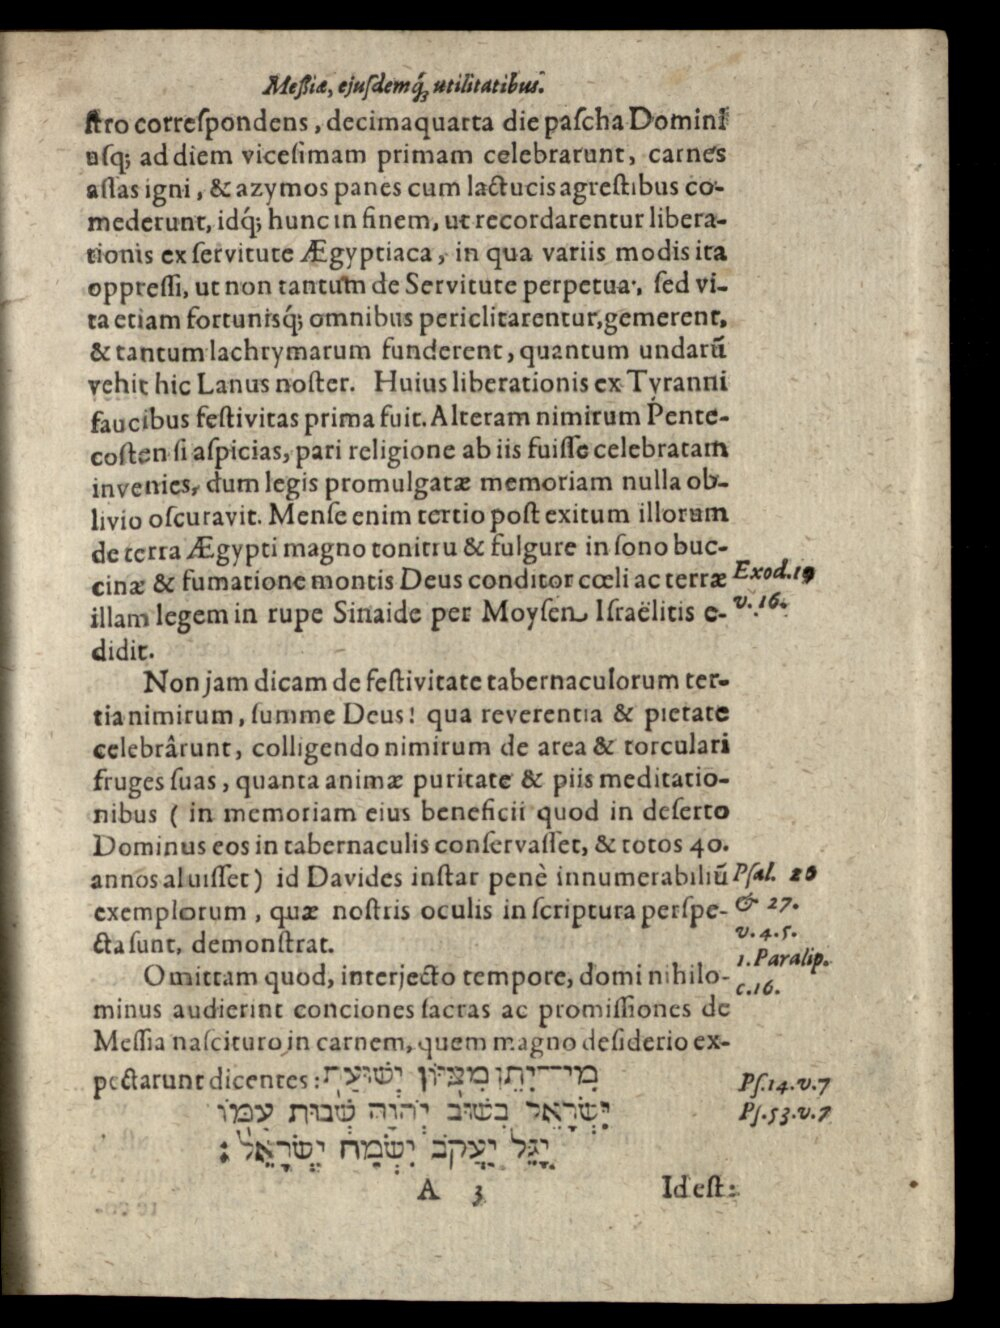 Meßiæ, ejuſdemq́; utilitatibus.
ſtro correſpondens, decimaquarta die paſcha Domini
uſq; ad diem viceſimam primam celebrarunt, carnes
aſſas igni, & azymos panes cum lactucis agreſtibus co-
mederunt, idq́; hunc in finem, ut recordarentur libera-
tionis ex ſervitute Ægyptiaca, in qua variis modis ita
oppreſſi, ut non tantum de Servitute perpetua, ſed vi-
ta etiam fortunisq́; omnibus periclitarentur, gemerent,
& tantum lachrymarum funderent, quantum undarũ
vehit hic Lanus noſter. Huius liberationis ex Tyranni
faucibus feſtivitas prima fuit. Alteram nimirum Pente-
coſten ſi aſpicias, pari religione ab iis fuiſſe celebratam
invenies, dum legis promulgatæ memoriam nulla ob-
livio oſcuravit. Menſe enim tertio poſt exitum illorum
de terra Ægypti magno tonitru & fulgure in ſono buc-
cinæ & fumatione montis Deus conditor cœli ac terræ
Exod. 19
illam legem in rupe Sinaide per Moyſen Iſraëlitis e-
v. 16.
didit.
Non jam dicam de feſtivitate tabernaculorum ter-
tia nimirum, ſumme Deus! qua reverentia & pietate
celebrârunt, colligendo nimirum de area & torculari
fruges ſuas, quanta animæ puritate & piis meditatio-
nibus ( in memoriam eius beneficii quod in deſerto
Dominus eos in tabernaculis conſervaſſet, & totos 40.
annos aluiſſet) id Davides inſtar penè innumerabiliũ
Pſal. 26
exemplorum, quæ noſtris oculis in ſcriptura perſpe-
& 27.
cta ſunt, demonſtrat.
v. 4. 5.
1. Paralip.
Omittam quod, interjecto tempore, domi nihilo-
c. 16.
minus audierint conciones ſacras ac promiſſiones de
Meſſia naſcituro in carnem, quem magno deſiderio ex-
pectarunt dicentes: מִי־יִתֵּן מִצִּיּוֹן יְשׁוּעַת
Pſ. 14. v. 7
יִשְׂרָאֵל בְּשׁוּב יְהוָה שְׁבוּת עַמּוֹ
Pſ. 53. v. 7
יָגֵל יַעֲקֹב יִשְׂמַח יִשְׂרָאֵל׃
A 3 Id eſt: